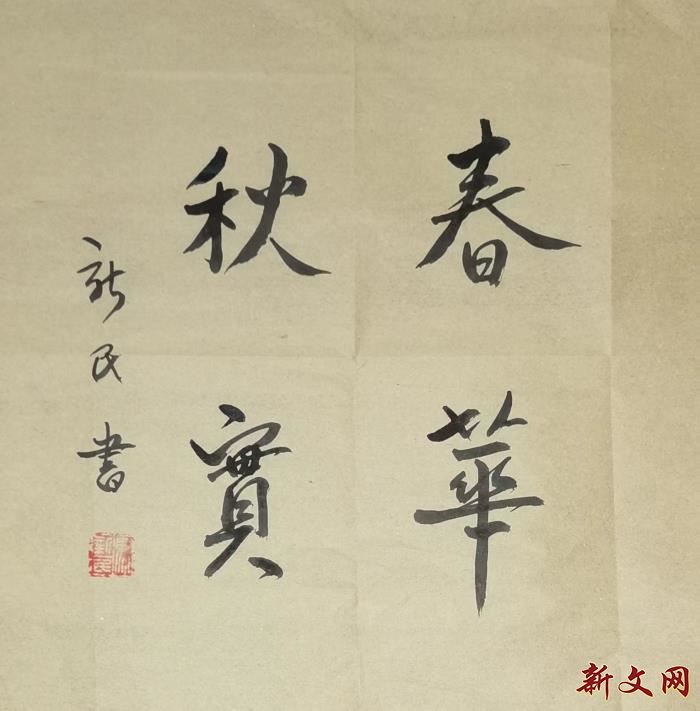 春華
秋實
新民書
新文网